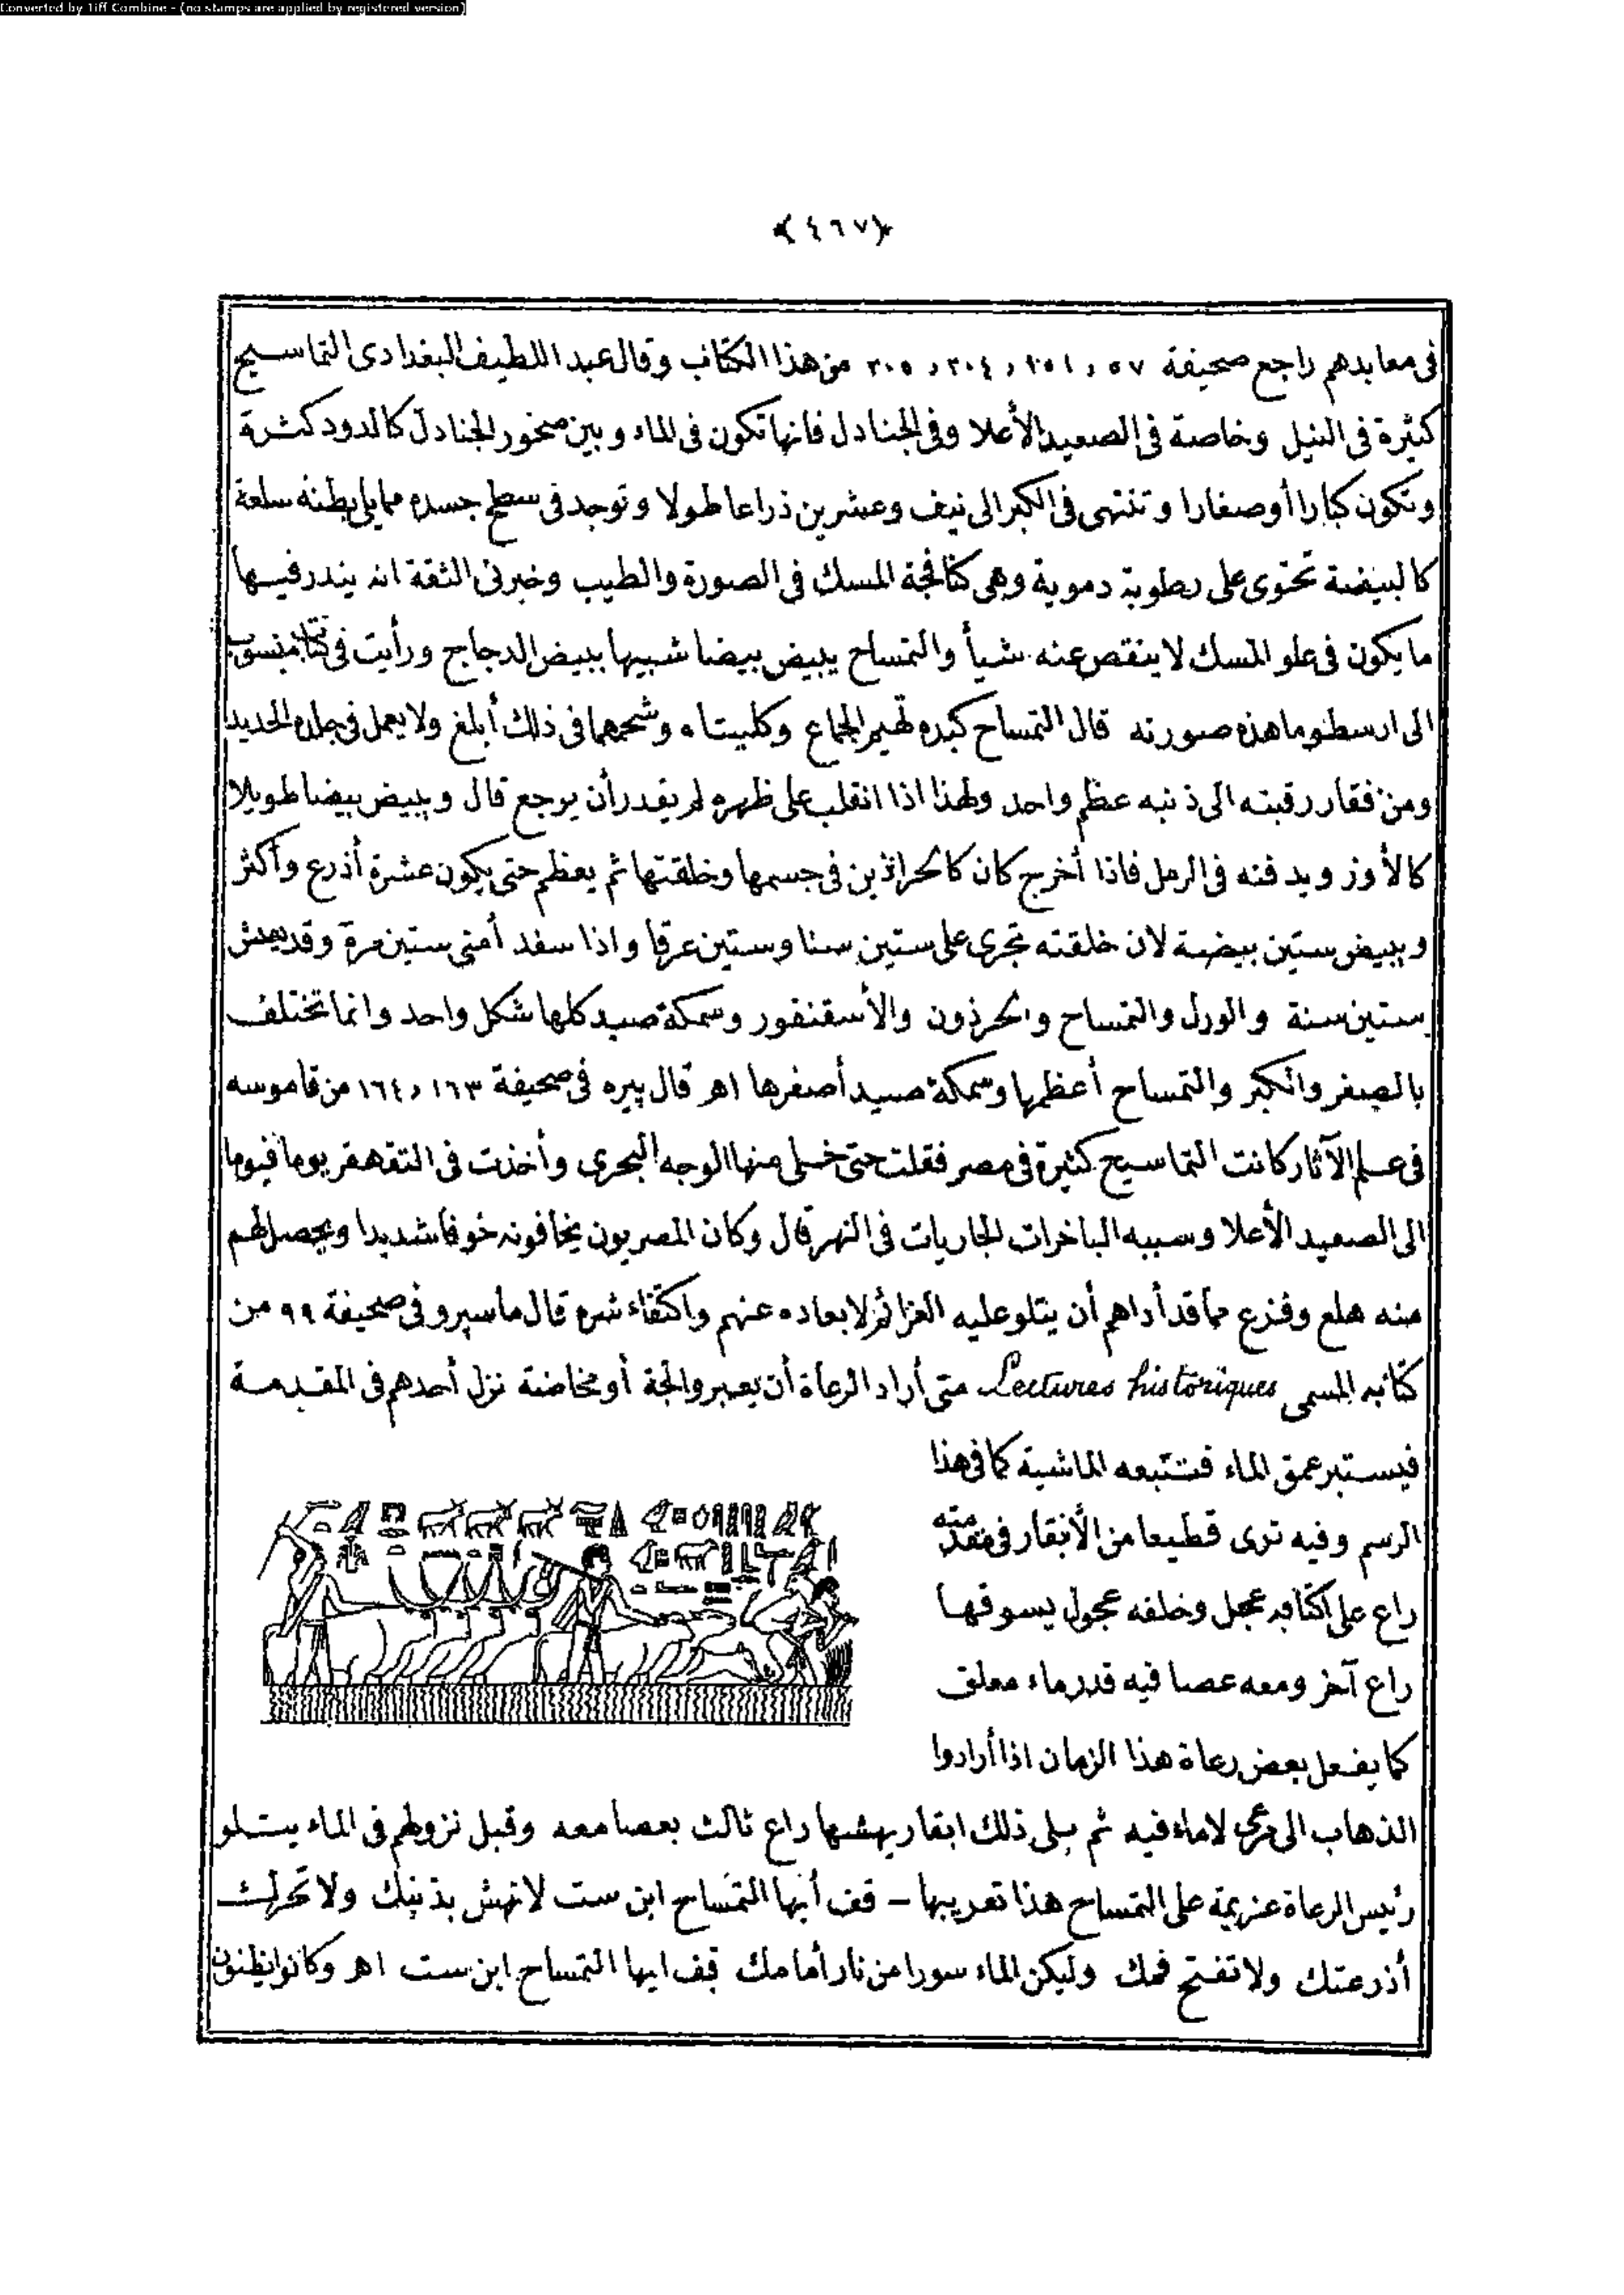 Converted by Tiff Combine - (no stamps are applied by registered version)
﴿٤٦٧﴾
فى معابدهم راجع صحيفة ٥٧ , ٢٥١ , ٣٠٤ , ٣٠٥ من هذا الكتاب وقال عبد اللطيف البغدادى التماسيح
كثيرة فى النيل وخاصة فى الصعيد الأعلا وفى الجنادل فانها تكون فى الماء وبين صخور الجنادل كالدود كثرة
وتكون كبارا أوصغارا وتنتهى فى الكبر الى نيف وعشرين ذراعا طولا وتوجد فى سطح جسده ممايلى بطنه سلعة
كالبيضة تحتوى على رطوبة دموية وهى كنافجة المسك فى الصورة والطيب وخبرنى الثقة انه يندر فيها
ما يكون فى علو المسك لاينقص عنه شيأ والتمساح يبيض بيضا شبيها ببيض الدجاج ورأيت فى كتاب منسوب
الى ارسطو ماهذه صورته قال التمساح كبده تهيج الجماع وكليتاه وشحمهما فى ذلك أبلغ ولايعمل فى جلده الحديد
ومن فقار رقبته الى ذنبه عظم واحد ولهذا اذا انقلب على ظهره لم يقدر أن يرجع قال ويبيض بيضا طويلا
كالأوز ويدفنه فى الرمل فاذا أخرج كان كالحراذين فى جسمها وخلقتها ثم يعظم حتى يكون عشرة أذرع وأكثر
ويبيض ستين بيضة لان خلقته تجرى على ستين سنا وستين عرقا واذا سفد أمنى ستين مرة وقد يعيش
ستين سنة والورل والتمساح والحرذون والأسقنقور وسمكة صيد كلها شكل واحد وانما تختلف
بالصغر والكبر والتمساح أعظمها وسمكة صيد أصغرها اهـ قال پيره فى صحيفة ١٦٣ , ١٦٤ من قاموسه
فى علم الآثار كانت التماسيح كثيرة فى مصر فقلت حتى خلى منها الوجه البحرى وأخذت فى التقهقر يوما فيوما
الى الصعيد الأعلا وسببه الباخرات الجاريات فى النهر قال وكان المصريون يخافونه خوفا شديدا ويحصل لهم
منه هلع وفزع مما قد أداهم أن يتلو عليه العزائم لابعاده عنهم واكتفاء شره قال ماسپرو فى صحيفة ٩٩ من
كتابه المسمى Lectures historiques متى أراد الرعاة أن يعبروا لجة أو مخاضة نزل أحدهم فى المقدمة
فيستبر عمق الماء فتتبعه الماشية كما فى هذا
الرسم وفيه ترى قطيعا من الأبقار فى مقدمته
راع على اكتافه عجل وخلفه عجول يسوقها
راع آخر ومعه عصا فيه قدر ماء معلق
كما يفعل بعض رعاة هذا الزمان اذا أرادوا
الذهاب الى مرعى لاماء فيه ثم يلى ذلك ابقار يهشها راع ثالث بعصا معه وقبل نزولهم فى الماء يتلو
رئيس الرعاة عزيمة على التمساح هذا تعريبها – قف أيها التمساح ابن ست لا تهش بذنبك ولا تحرك
أذرعتك ولا تفتح فمك وليكن الماء سورا من نار أمامك قف ايها التمساح ابن ست اهـ وكانوا يظنون